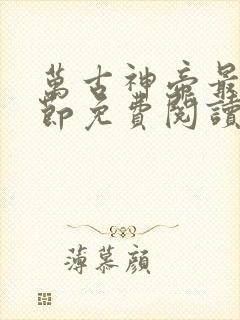 萬古神帝最
節免費閱讀
薄慕顏